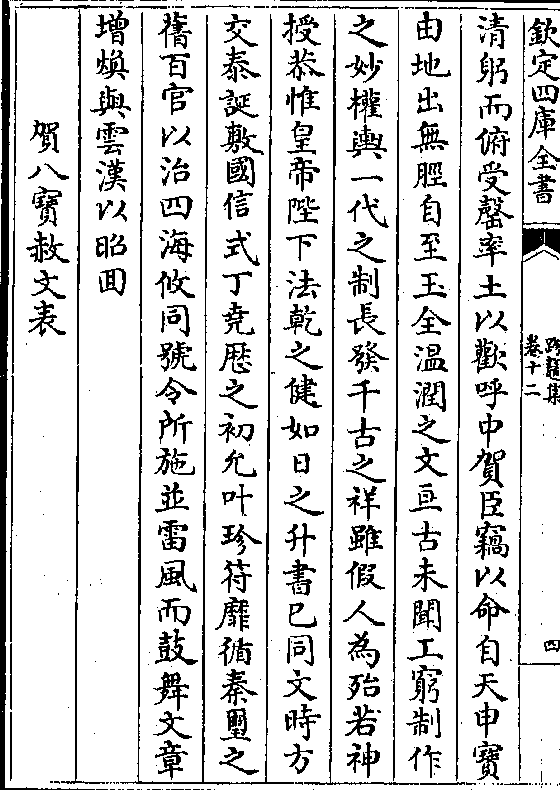 欽定四庫全書
卷十二
四
清躬而俯受罄率土以歡呼中賀臣竊以命自天申寶
由地出無脛自至玉全温潤之文亘古未聞工窮制作
之妙權輿一代之制長發千古之祥雖假人為殆若神
授恭惟皇帝陛下法乾之健如日之升書已同文時方
交泰誕敷國信式丁堯厯之初允叶珍符靡循秦璽之
舊百官以治四海攸同號令所施並雷風而鼓舞文章
增煥與雲漢以昭回
賀八寶赦文表